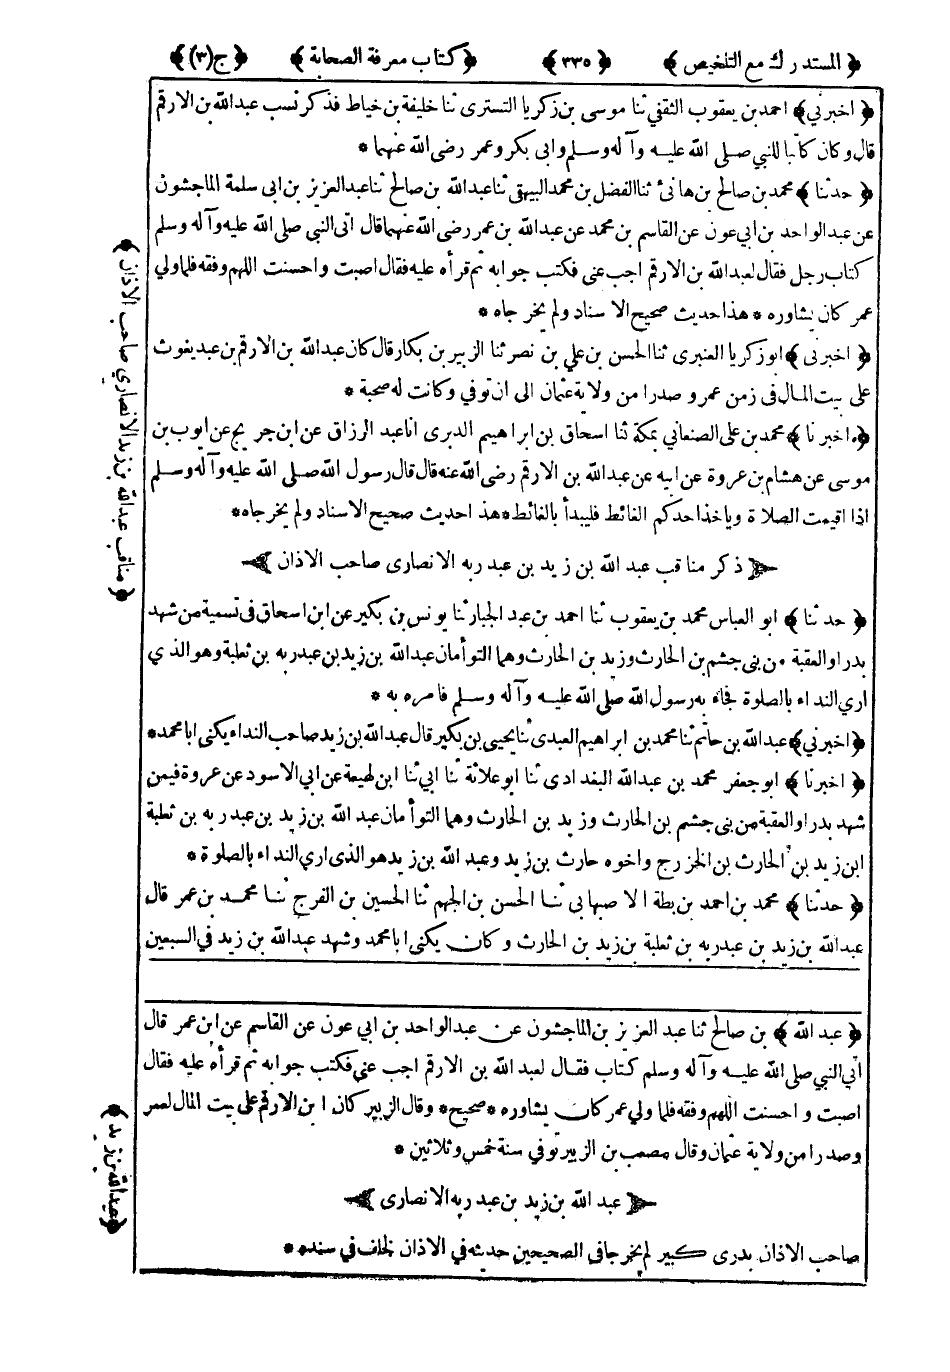 ﴿ المستدرك مع التلخيص ﴾ ﴿ ٣٣٥ ﴾ ﴿ كتاب معرفة الصحابة ﴾ ﴿ ج(٣) ﴾
﴿ اخبرني ﴾ احمد بن يعقوب الثقفي ثنا موسى بن زكريا التسترى ثنا خليفة بن خياط فذكر نسب عبدالله بن الارقم
قال وكان كاتبا للنبي صلى الله عليه وآله وسلم وابى بكر وعمر رضى الله عنهما *
﴿ حدثنا ﴾ محمد بن صالح بن هانئ ثنا الفضل بن محمد البيهقي ثنا عبدالله بن صالح ثنا عبدالعزيز بن ابى سلمة الماجشون
عن عبدالواحد بن ابي عون عن القاسم بن محمد عن عبدالله بن عمر رضى الله عنهما قال اتى النبي صلى الله عليه وآله وسلم
كتاب رجل فقال لعبدالله بن الارقم اجب عنى فكتب جوابه ثم قرأه عليه فقال اصبت واحسنت اللهم وفقه فلما ولي
عمر كان يشاوره * هذا حديث صحيح الاسناد ولم يخرجاه *
﴿ اخبرنى ﴾ ابوزكريا العنبرى ثنا الحسن بن علي بن نصر ثنا الزبير بن بكار قال كان عبدالله بن الارقم بن عبد يغوث
على بيت المال فى زمن عمر و صدرا من ولاية عثمان الى ان توفي وكانت له صحبة *
﴿ اخبرنا ﴾ محمد بن على الصنعاني بمكة ثنا اسحاق بن ابراهيم الدبرى انا عبد الرزاق عن ابن جريج عن ايوب بن
موسى عن هشام بن عروة عن ابيه عن عبدالله بن الارقم رضى الله عنه قال قال رسول الله صلى الله عليه وآله وسلم
اذا اقيمت الصلاة وياخذ احدكم الغائط فليبدأ بالغائط * هذ احديث صحيح الاسناد ولم يخرجاه *
ذكر مناقب عبد الله بن زيد بن عبد ربه الانصارى صاحب الاذان
﴿ حدثنا ﴾ ابو العباس محمد بن يعقوب ثنا احمد بن عبد الجبار ثنا يونس بن بكير عن ابن اسحاق فى تسمية من شهد
بدرا والعقبة من بنى جشم بن الحارث وزيد بن الحارث وهما التوأمان عبدالله بن زيد بن عبدربه بن ثعلبة وهو الذي
اري النداء بالصلوة فجاء به رسول الله صلى الله عليه وآله وسلم فامره به *
﴿ اخبرني ﴾ عبدالله بن حاتم ثنا محمد بن ابراهيم العبدى ثنا يحيى بن بكير قال عبدالله بن زيد صاحب النداء يكنى ابا محمد *
﴿ اخبرنا ﴾ ابوجعفر محمد بن عبدالله البغدادى ثنا ابو علاثة ثنا ابي ثنا ابن لهيعة عن ابي الاسود عن عروة فيمن
شهد بدرا والعقبة من بنى جشم بن الحارث وزيد بن الحارث وهما التوأمان عبد الله بن زيد بن عبد ربه بن ثعلبة
ابن زيد بن الحارث بن الخزرج واخوه حارث بن زيد وعبد الله بن زيد هو الذى اري النداء بالصلوة *
﴿ حدثنا ﴾ محمد بن احمد بن بطة الاصبهانى ثنا الحسن بن الجهم ثنا الحسين بن الفرج ثنا محمد بن عمر قال
عبدالله بن زيد بن عبدربه بن ثعلبة بن زيد بن الحارث وكان يكنى ابا محمد وشهد عبدالله بن زيد في السبعين
﴿ مناقب عبدالله بن زيد الانصاري صاحب الاذان ﴾
﴿ عبد الله ﴾ بن صالح ثنا عبد العزيز بن الماجشون عن عبدالواحد بن ابي عون عن القاسم عن ابن عمر قال
أتي النبي صلى الله عليه وآله وسلم كتاب فقال لعبد الله بن الارقم اجب عني فكتب جوابه ثم قرأه عليه فقال
اصبت واحسنت اللهم وفقه فلما ولي عمر كان يشاوره * صحيح * وقال الزبير كان ابن الارقم على بيت المال لعمر
وصدرا من ولاية عثمان وقال مصعب بن الزبير توفي سنة خمس وثلاثين *
عبد الله بن زيد بن عبد ربه الانصارى
صاحب الاذان بدرى كبير لم يخرجا فى الصحيحين حديثه في الاذان لخلف في سنده *
﴿ عبدالله بن زيد ﴾